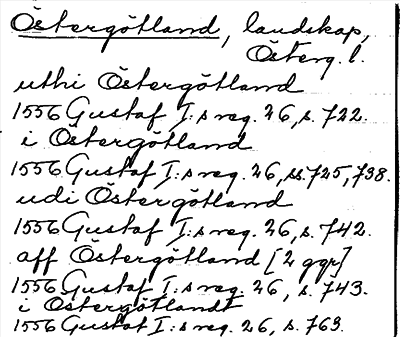 Östergötland, landskap,
Österg. l.
uthi Östergötland
1556 Gustaf I:s reg. 26, s. 722.
i Östergötland
1556 Gustaf I:s reg. 26, ss. 725, 738.
udi Östergötland
1556 Gustaf I:s reg. 26, s. 742.
aff Östergötland [2 ggr]
1556 Gustaf I:s reg. 26, s. 743.
i Östergötlandt
1556 Gustaf I:s reg. 26, s. 763.